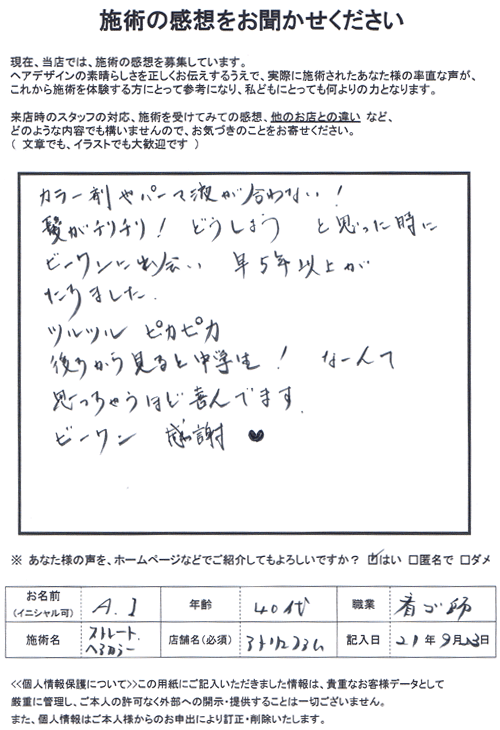 施術の感想をお聞かせください
現在、当店では、施術の感想を募集しています。
ヘアデザインの素晴らしさを正しくお伝えするうえで、実際に施術されたあなた様の率直な声が、
これから施術を体験する方にとって参考になり、私どもにとっても何よりの力となります。
来店時のスタッフの対応、施術を受けてみての感想、他のお店との違い など、
どのような内容でも構いませんので、お気づきのことをお寄せください。
( 文章でも、イラストでも大歓迎です )
カラー剤やパーマ液が合わない!
髪がチリチリ! どうしよう と思った時に
ビーワンに出会い 早5年以上が
たちました.
ツルツル ピカピカ
後ろから見ると中学生! なーんて
思っちゃうほど喜んでます.
ビーワン 感謝 ♥
※ あなた様の声を、ホームページなどでご紹介してもよろしいですか? ☑はい □匿名で □ダメ
お名前 (イニシャル可) A.I 年齢 40代 職業 看ゴ師
施術名 ストレート. ヘナカラー 店舗名(必須) 記入日 21年9月23日
<<個人情報保護について>>この用紙にご記入いただきました情報は、貴重なお客様データとして
厳重に管理し、ご本人の許可なく外部への開示・提供することは一切ございません。
また、個人情報はご本人様からのお申出により訂正・削除いたします。